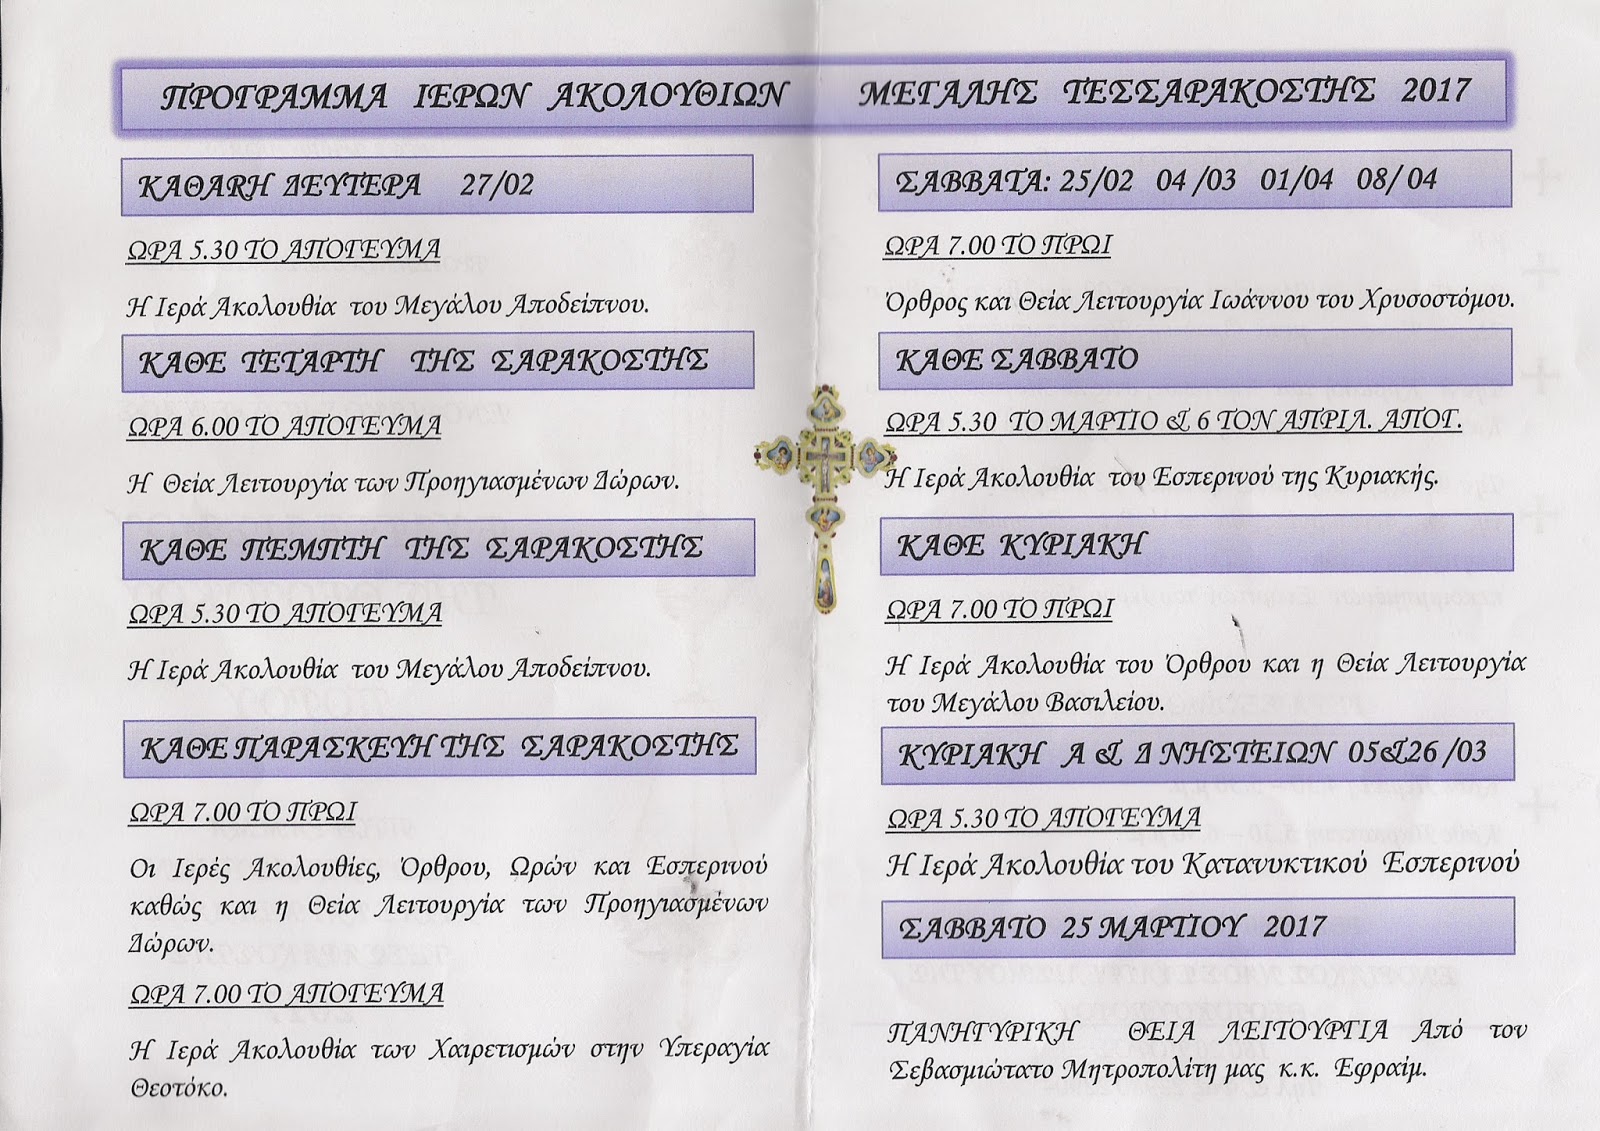 ΠΡΟΓΡΑΜΜΑ ΙΕΡΩΝ ΑΚΟΛΟΥΘΙΩΝ ΜΕΓΑΛΗΣ ΤΕΣΣΑΡΑΚΟΣΤΗΣ 2017
ΚΑΘΑΡΗ ΔΕΥΤΕΡΑ 27/02
ΩΡΑ 5.30 ΤΟ ΑΠΟΓΕΥΜΑ
Η Ιερά Ακολουθία του Μεγάλου Αποδείπνου.
ΚΑΘΕ ΤΕΤΑΡΤΗ ΤΗΣ ΣΑΡΑΚΟΣΤΗΣ
ΩΡΑ 6.00 ΤΟ ΑΠΟΓΕΥΜΑ
Η Θεία Λειτουργία των Προηγιασμένων Δώρων.
ΚΑΘΕ ΠΕΜΠΤΗ ΤΗΣ ΣΑΡΑΚΟΣΤΗΣ
ΩΡΑ 5.30 ΤΟ ΑΠΟΓΕΥΜΑ
Η Ιερά Ακολουθία του Μεγάλου Αποδείπνου.
ΚΑΘΕ ΠΑΡΑΣΚΕΥΗ ΤΗΣ ΣΑΡΑΚΟΣΤΗΣ
ΩΡΑ 7.00 ΤΟ ΠΡΩΙ
Οι Ιερές Ακολουθίες, Όρθρου, Ωρών και Εσπερινού
καθώς και η Θεία Λειτουργία των Προηγιασμένων
Δώρων.
ΩΡΑ 7.00 ΤΟ ΑΠΟΓΕΥΜΑ
Η Ιερά Ακολουθία των Χαιρετισμών στην Υπεραγία
Θεοτόκο.
ΣΑΒΒΑΤΑ: 25/02 04 /03 01/04 08/ 04
ΩΡΑ 7.00 ΤΟ ΠΡΩΙ
Όρθρος και Θεία Λειτουργία Ιωάννου του Χρυσοστόμου.
ΚΑΘΕ ΣΑΒΒΑΤΟ
ΩΡΑ 5.30 ΤΟ ΜΑΡΤΙΟ & 6 ΤΟΝ ΑΠΡΙΛ. ΑΠΟΓ.
Η Ιερά Ακολουθία του Εσπερινού της Κυριακής.
ΚΑΘΕ ΚΥΡΙΑΚΗ
ΩΡΑ 7.00 ΤΟ ΠΡΩΙ
Η Ιερά Ακολουθία του Όρθρου και η Θεία Λειτουργία
του Μεγάλου Βασιλείου.
ΚΥΡΙΑΚΗ Α & Δ ΝΗΣΤΕΙΩΝ 05&26 /03
ΩΡΑ 5.30 ΤΟ ΑΠΟΓΕΥΜΑ
Η Ιερά Ακολουθία του Κατανυκτικού Εσπερινού
ΣΑΒΒΑΤΟ 25 ΜΑΡΤΙΟΥ 2017
ΠΑΝΗΓΥΡΙΚΗ ΘΕΙΑ ΛΕΙΤΟΥΡΓΙΑ Από τον
Σεβασμιώτατο Μητροπολίτη μας κ.κ. Εφραίμ.